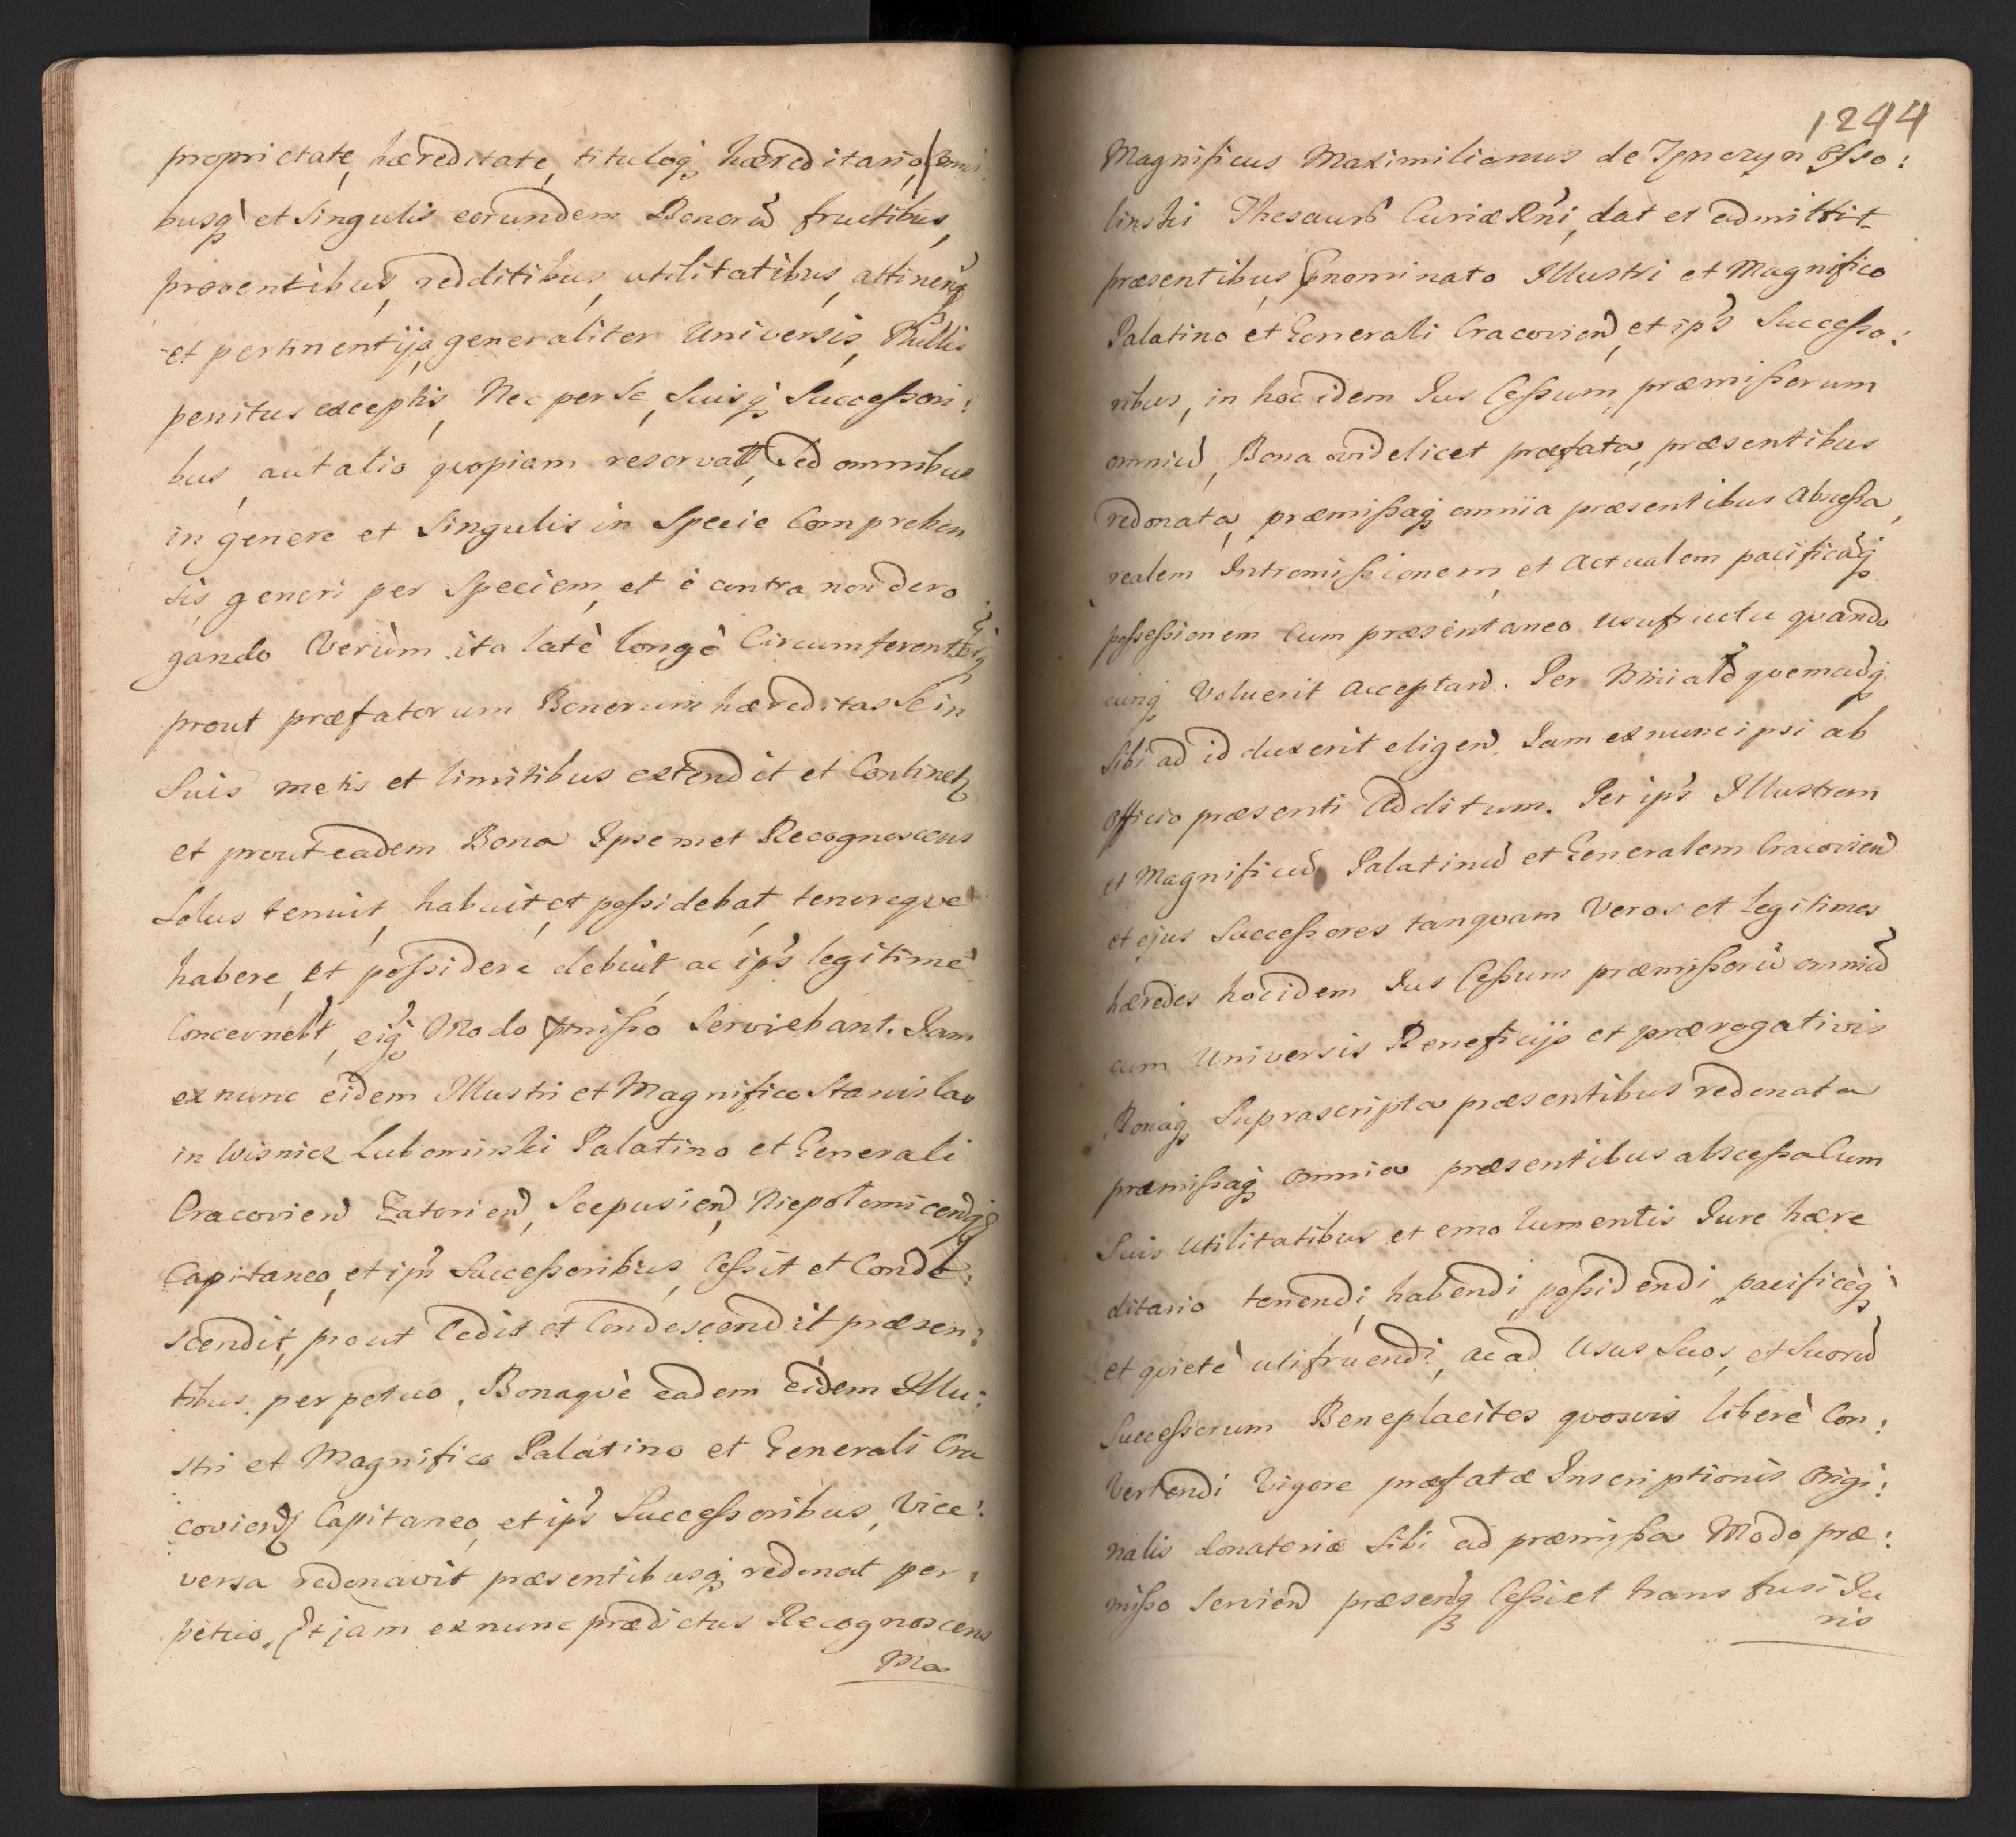 proprietate, hæreditate, tituloq hæreditario, omni:
busq et Singulis eorundem Bonorũ fructibus,
proventibus, redditibus, utilitatibus, attinenq
et pertinentijs generaliter Universis, Nullis
penitus exceptis, Nec per Se, Suisq Successori:
bus, aut alio quopiam reservatt, Sed omnibus
in genere et Singulis in Specie Comprehen
sis, generi per Speciem, et è contra non dero
gando Verùm ita latè longè Circumferent
prout præfatorum Bonorum hæreditas Se in
Suis metis et limitibus extendit et Continet
et prout eadem Bona Ipsemet Recognoscens
Solus tenuit, habuit, et possidebat, tenereque
habere, et possidere debuit, ac ips legitimè
Concerneb't, eiq Modo pmisso Serviebant. Jam
ex nunc eidem Illustri et Magnifico Stanislao
in Wisnicz Lubomirski Palatino et Generali
Cracovien Zatorien, Scepusien, Niepolomicenq
Capitaneo, et ips Successoribus, Cessit et Conde:
scendit, prout Cedit et Condescendit præsen:
tibus perpetuo. Bonaquè eadem eidem Illu:
stri et Magnifico Palatino et Generali Cra
covien Capitaneo, et ips Successoribus, Vice:
versa redonavit præsentibusq redonat per:
petuo. Et jam ex nunc prædictus Recognoscens
Ma
1244
Magnificus Maximilianus de Tynczyn Osso:
linski Thesaur9 Curiæ Rni, dat et admittit
præsentibus, Pnominato Illustri et Magnifico
Palatino et Generali Cracovien, et ips Successo:
ribus, in hoc idem Jus Cessum, præmissorum
omniũ, Bona videlicet præfata, præsentibus
redonata, præmissaq omnia præsentibus Abscessa,
realem Intromissionem, et Actualem pacificãq
possessionem Cum præsentaneo usufructu quando
cunq Voluerit Acceptan. Per quemcunq
Sibi ad id duxerit eligen. Jam ex nunc ipsi ab
officio præsenti Additum. Per ips Illustrem
et Magnificũ Palatinũ et Generalem Cracovien
et ejus Successores tanquam Veros et Legitimos
hæredes hoc idem Jus Cessum præmissorũ omniũ
cum Universis Beneficijs et prærogativis
Bonaq Suprascripta præsentibus redonata
præmissaq omnia præsentibus abscessa Cum
Suis Utilitatibus et emolumentis Jure hære
ditario tenendi, habendi, possidendi, pacificèq
et quietè utifruendi, ac ad Usus Suos, et Suorũ
Successorum Beneplacitos quosvis liberè Con:
Vertendi Vigore præfatæ Inscriptionis Origi:
nalis donatoriæ Sibi ad præmissa Modo præ:
misso Servien præsenq Cessi et transfusi Ju
ris